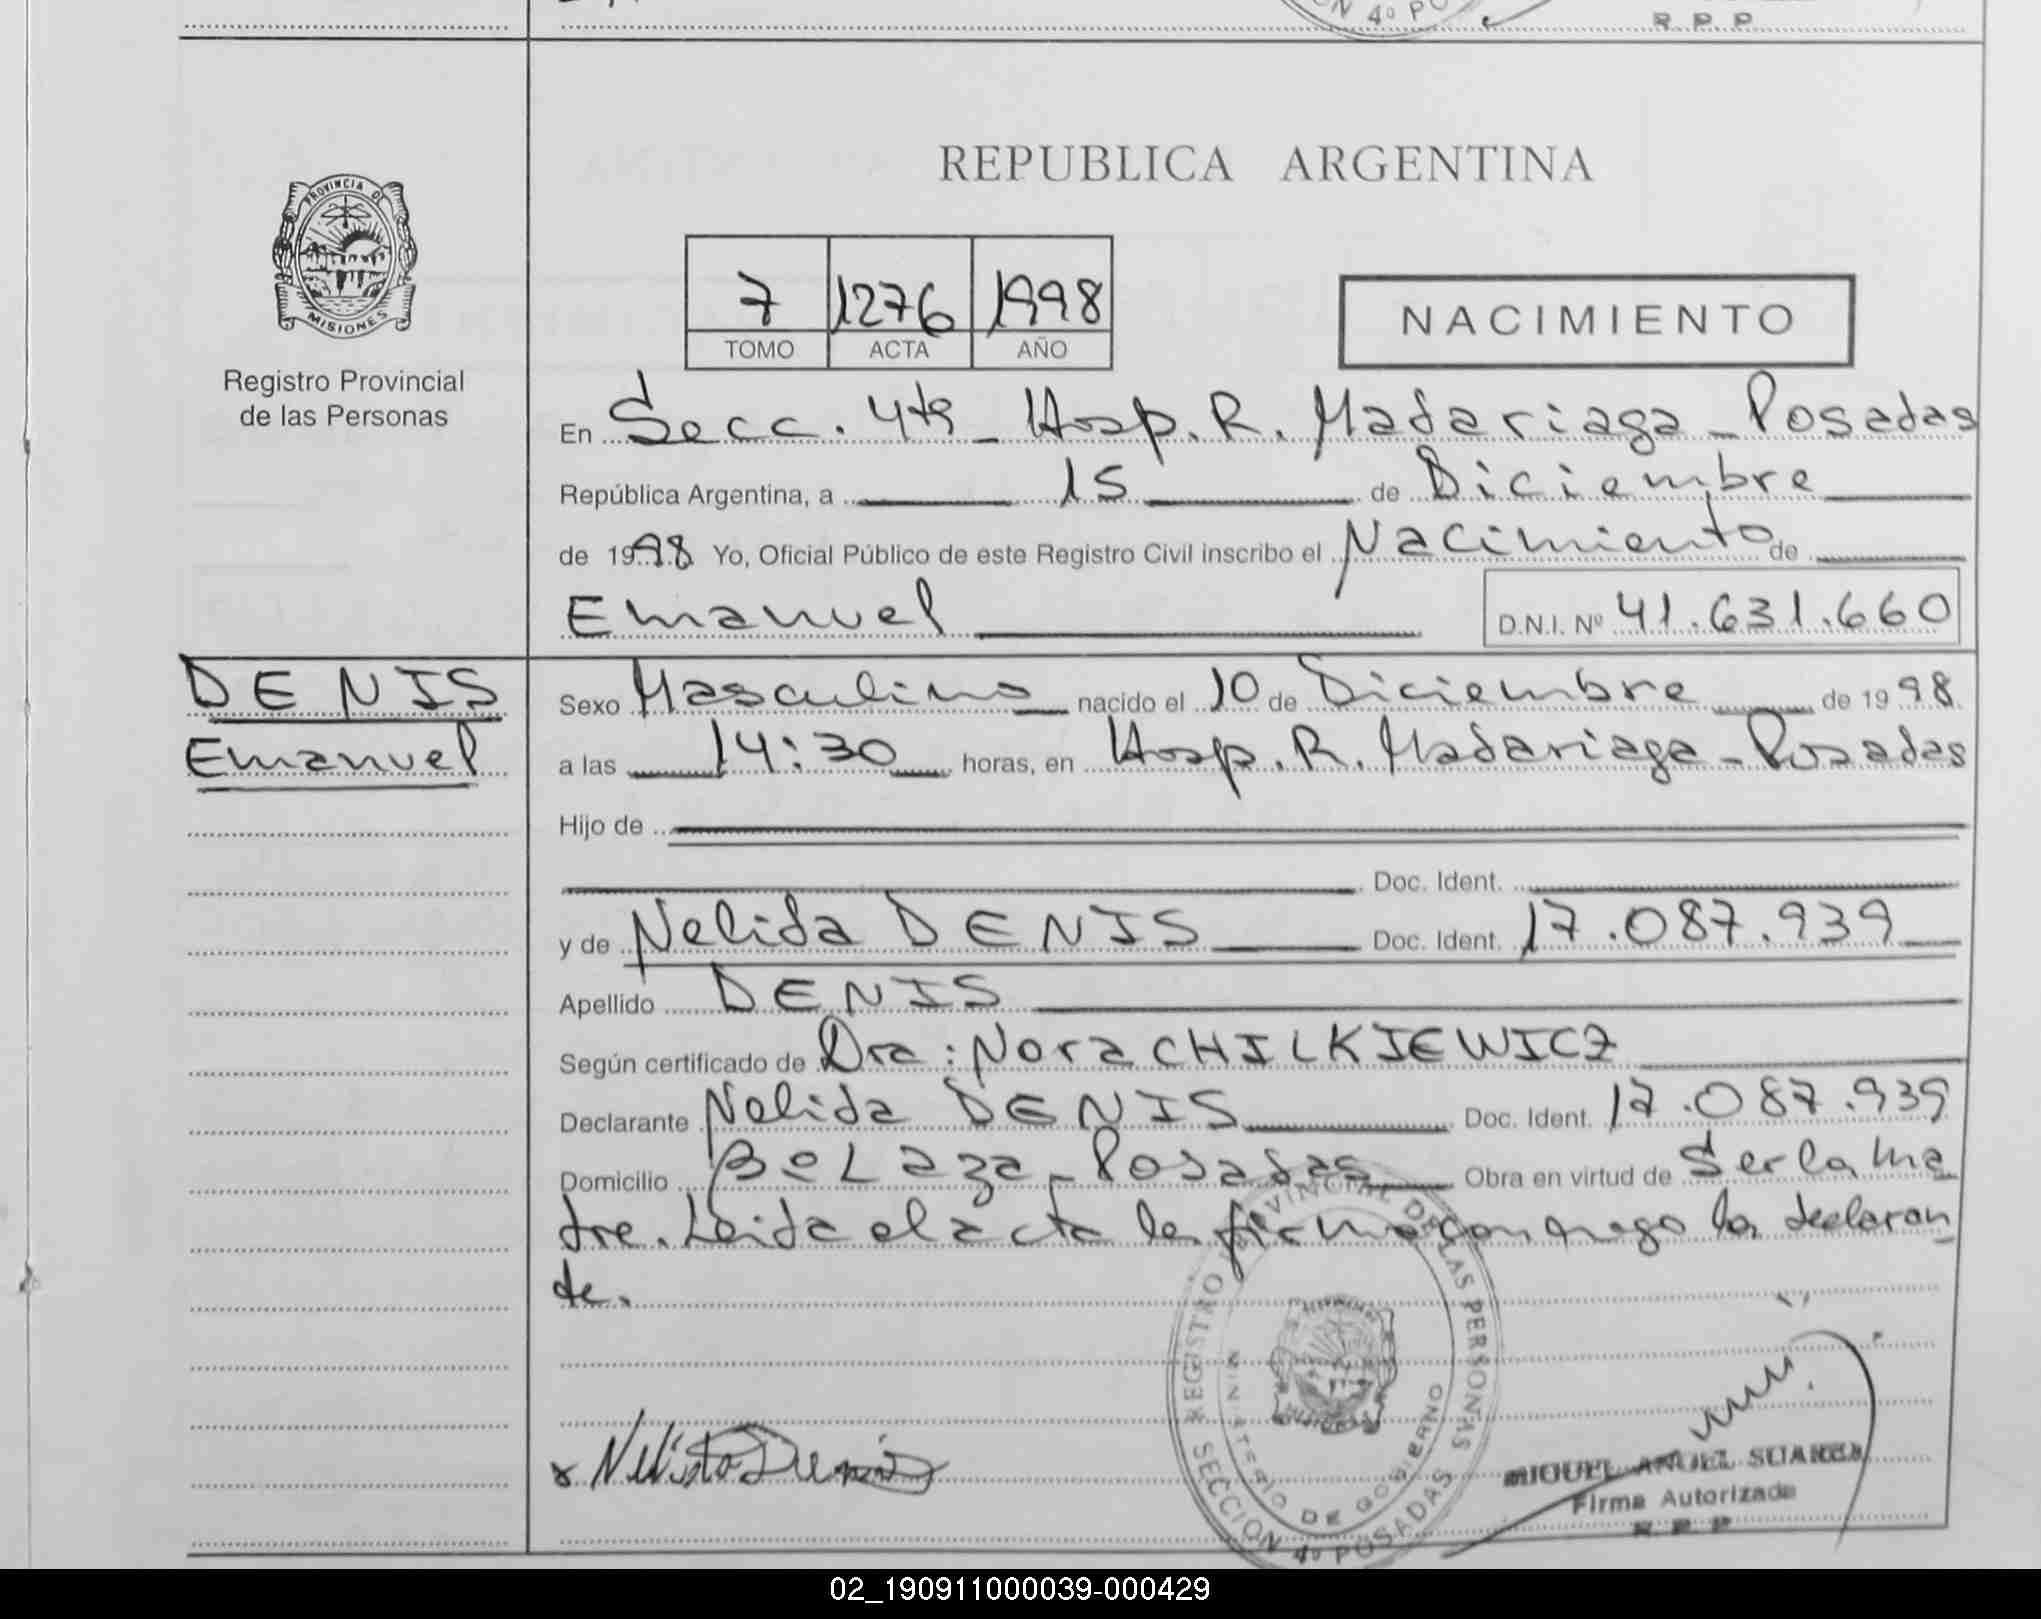 N 4º PO
R. P. P.
PROVINCIA DE
MISIONES
Registro Provincial
de las Personas
REPUBLICA ARGENTINA
7 1276 1998
TOMO ACTA AÑO
NACIMIENTO
En Secc. 4ta - Hosp. R. Madariaga - Posadas
República Argentina, a 15 de Diciembre
de 1998 Yo, Oficial Público de este Registro Civil inscribo el Nacimiento de
Emanuel D.N.I. Nº 41.631.660
DENIS
Emanuel
Sexo Masculino nacido el 10 de Diciembre de 1998
a las 14:30 horas, en Hosp. R. Madariaga - Posadas
Hijo de
Doc. Ident.
y de Nelida DENIS Doc. Ident. 17.087.939
Apellido DENIS
Según certificado de Dra: Nora CHILKIEWICZ
Declarante Nelida DENIS Doc. Ident. 17.087.939
Domicilio BeLaza - Posadas Obra en virtud de Ser la ma
dre. Leida el acta la firma conmigo la declaran
te.
REGISTRO PROVINCIAL DE LAS PERSONAS
MINISTERIO DE GOBIERNO
SECCION 4º POSADAS
x Denis
MIGUEL ANGEL SUAREZ
Firma Autorizada
R. P. P.
02_190911000039-000429